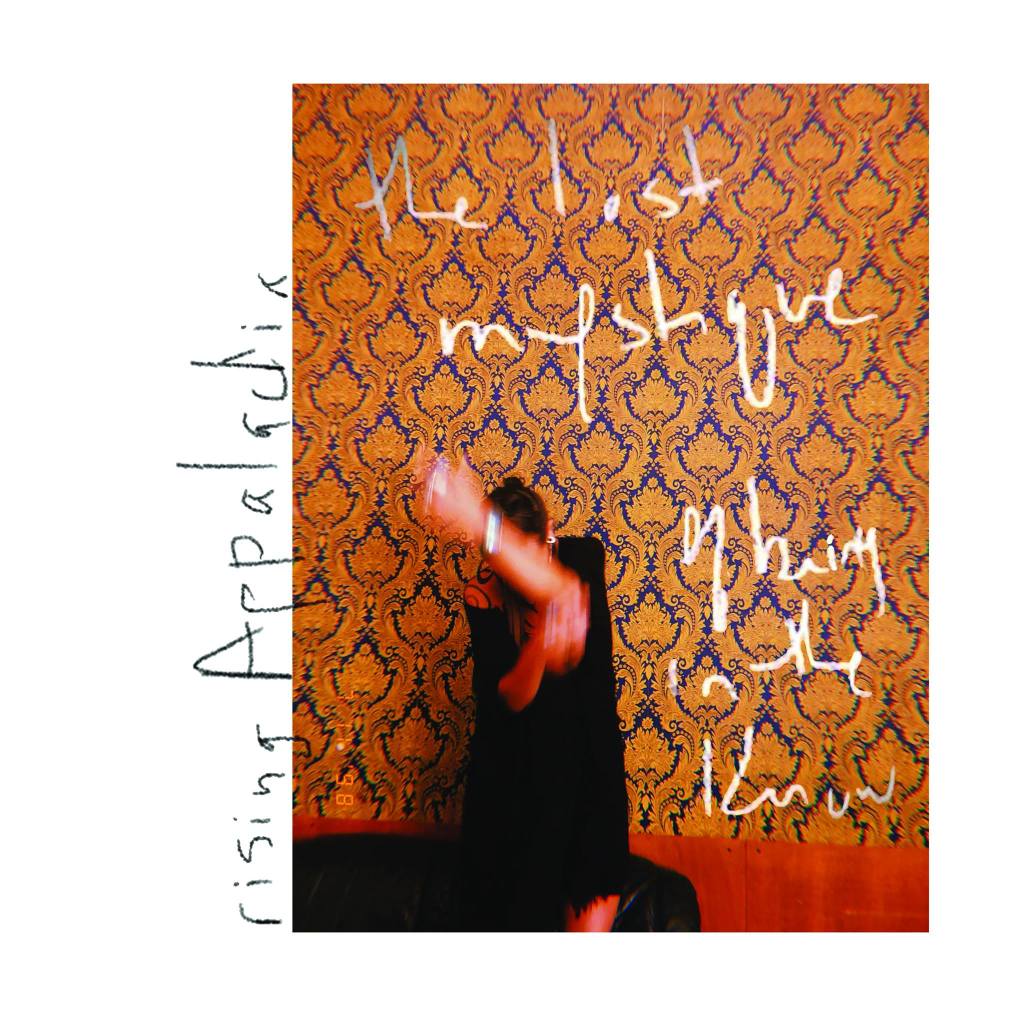 rising Appalachia
the lost
mystique
of being
in the
know